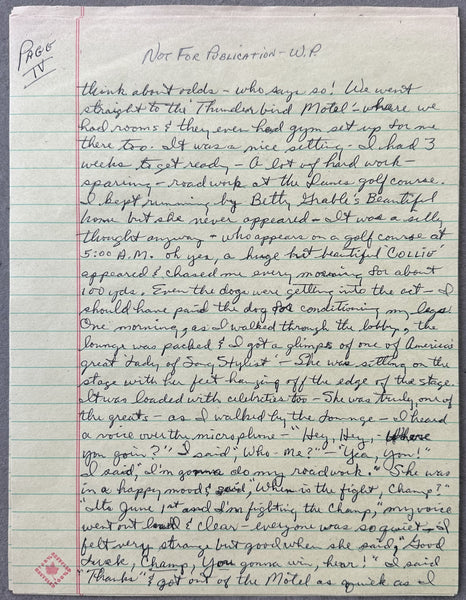 PAGE
IV
NOT FOR PUBLICATION - W.P.
think about odds - who says so! We went
straight to the Thunderbird Motel - where we
had rooms & they even had gym set up for me
there too. It was a nice setting - I had 3
weeks to get ready - A lot of hard work -
sparring - roadwork at the Dunes golf course.
I kept running by Betty Grable's Beautiful
home but she never appeared - It was a silly
thought anyway - who appears on a golf course at
5:00 A.M. oh yes, a huge but beautiful "COLLIO"
appeared & chased me every morning for about
100 yds. Even the dogs were getting into the act - I
should have paid the dog for conditioning my legs
One morning, as I walked through the lobby, the
lounge was packed & I got a glimpse of one of America's
great 'Lady of Song Stylist' - She was sitting on the
stage with her feet hanging off the edge of the stage.
It was loaded with celebrities too - She was truly one of
the greats - as I walked by the Lounge - I heard
a voice over the microphone - "Hey, Hey, - Where
you goin?" I said, "Who - Me?" - "Yea, You!"
I said, "I'm gonna do my roadwork." She was
in a happy mood & said, "When is the fight, Champ?"
"Its June 1st and I'm fighting the Champ," my voice
went out loud & Clear - everyone was so quiet - I
felt very strange but good when she said, "Good
Luck, Champ, You gonna win, hear!" I said
"Thanks" & got out of the Motel as quick as I